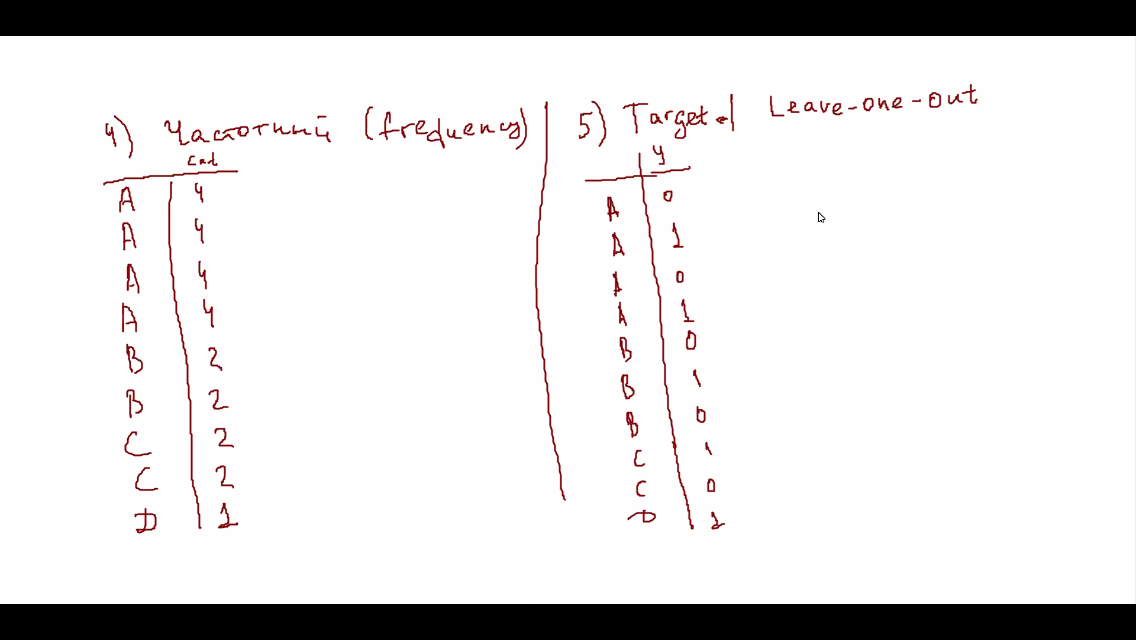 4) Частотный (frequency)
cat
A 4
A 4
A 4
A 4
B 2
B 2
C 2
C 2
D 1
5) Target. Leave-one-out
y
A 0
A 1
A 0
A 1
B 0
B 1
B 0
C 1
C 0
D 1